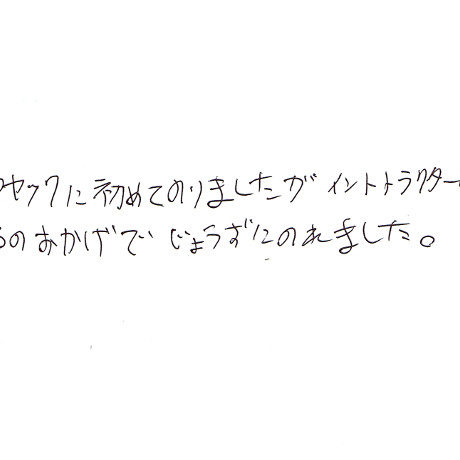 ヤックに初めてのりましたがイントトラクター
のおかげでじょうずにのれました。